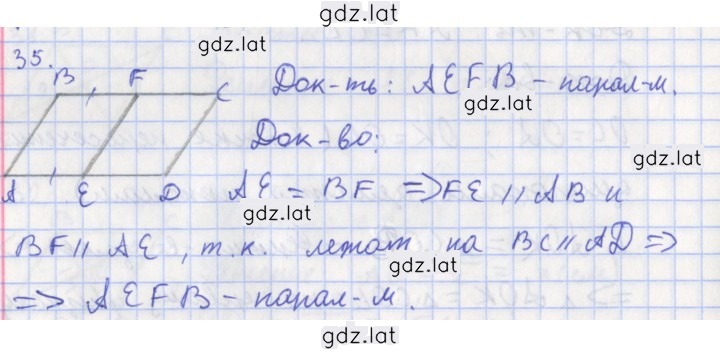 gdz.lat
35.
gdz.lat
B F C
Док-ть: AEFB - парал-м.
gdz.lat
Док-во:
gdz.lat
A E D
AE = BF => FE || AB и
gdz.lat
BF || AE, т.к. лежат на BC || AD =>
gdz.lat
=> AEFB - парал-м.
gdz.lat